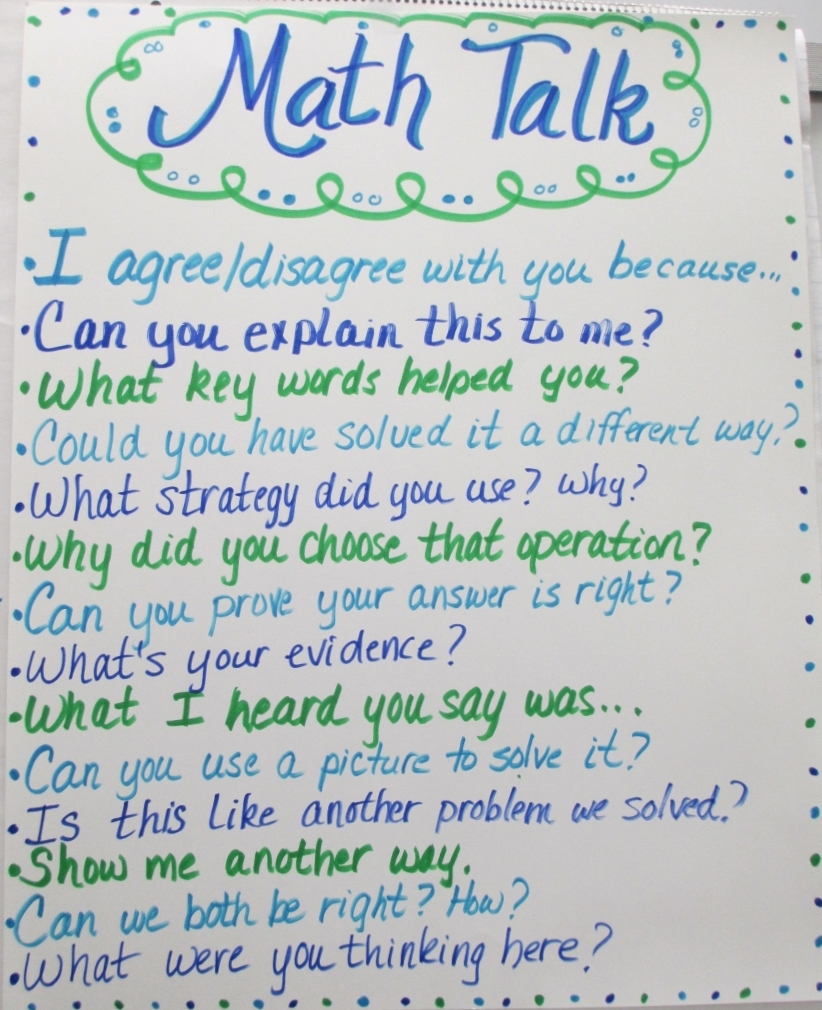 Math Talk
• I agree/disagree with you because...
• Can you explain this to me?
• What key words helped you?
• Could you have solved it a different way?
• What strategy did you use? Why?
• Why did you choose that operation?
• Can you prove your answer is right?
• What's your evidence?
• What I heard you say was...
• Can you use a picture to solve it?
• Is this like another problem we solved?
• Show me another way.
• Can we both be right? How?
• What were you thinking here?